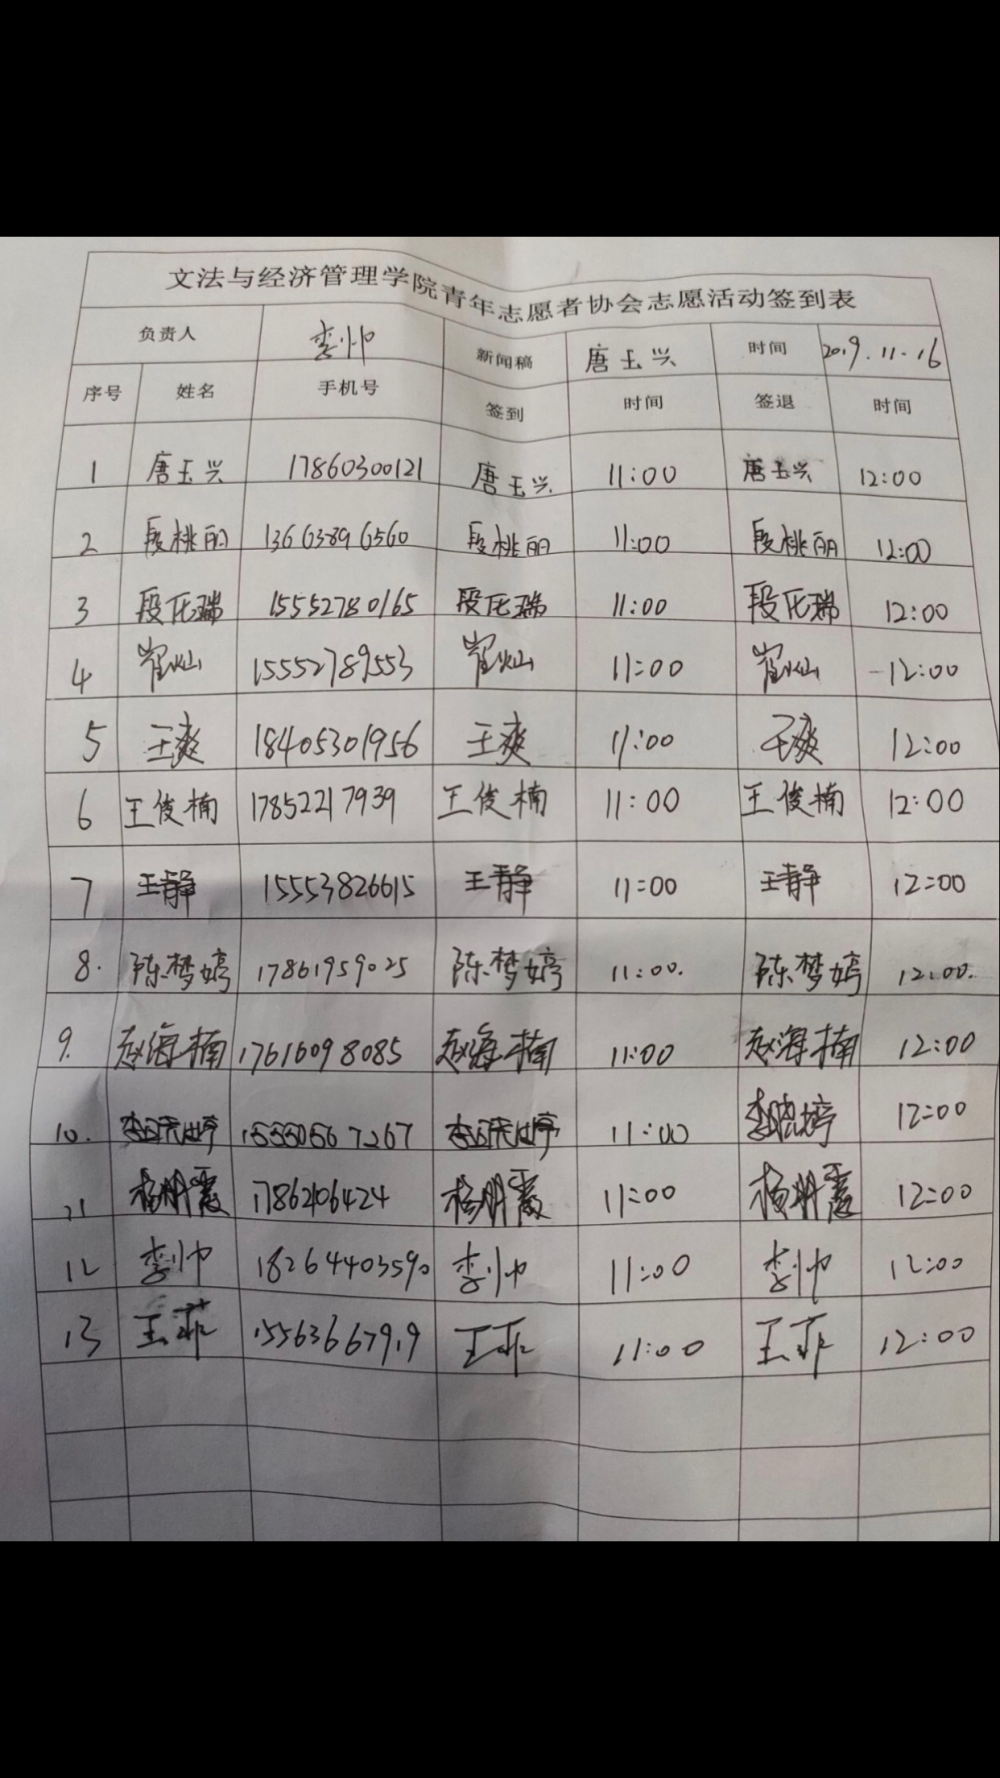 文法与经济管理学院青年志愿者协会志愿活动签到表
负责人 李帅 新闻稿 唐玉兴 时间 2019.11.16
序号 姓名 手机号 签到 时间 签退 时间
1 唐玉兴 17860300121 唐玉兴 11:00 唐玉兴 12:00
2 段桃丽 13663896560 段桃丽 11:00 段桃丽 12:00
3 段玉瑞 15552780165 段玉瑞 11:00 段玉瑞 12:00
4 崔灿 15552789553 崔灿 11:00 崔灿 12:00
5 王爽 18405301956 王爽 11:00 王爽 12:00
6 王俊楠 17852217939 王俊楠 11:00 王俊楠 12:00
7 王静 15553826615 王静 11:00 王静 12:00
8. 陈梦婷 17861959025 陈梦婷 11:00. 陈梦婷 12:00.
9. 赵海楠 17616098085 赵海楠 11:00 赵海楠 12:00
10. 李晓婷 15550567267 李晓婷 11:00 李晓婷 12:00
11 杨朋霞 17862106424 杨朋霞 11:00 杨朋霞 12:00
12 李帅 18264403590 李帅 11:00 李帅 12:00
13 王菲 15563667919 王菲 11:00 王菲 12:00